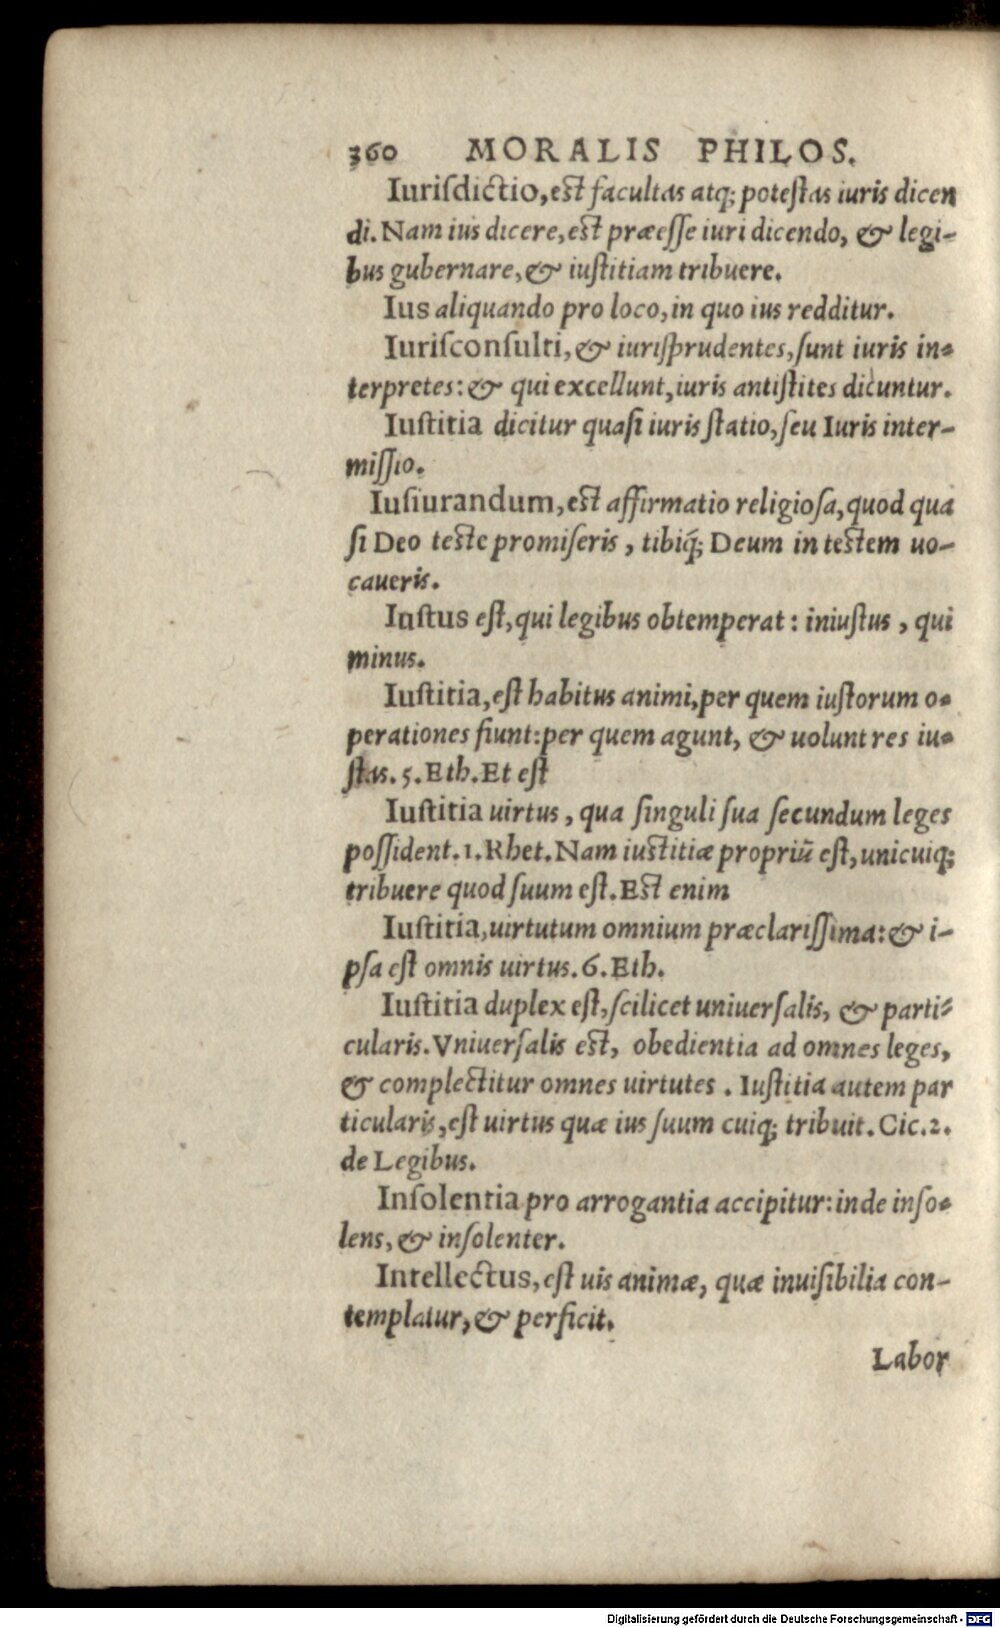 360 MORALIS PHILOS.
Iuriſdictio, eſt facultas atq; poteſtas iuris dicen
di. Nam ius dicere, eſt præeſſe iuri dicendo, & legi-
bus gubernare, & iuſtitiam tribuere.
Ius aliquando pro loco, in quo ius redditur.
Iuriſconſulti, & iuriſprudentes, ſunt iuris in-
terpretes: & qui excellunt, iuris antiſtites dicuntur.
Iuſtitia dicitur quaſi iuris ſtatio, ſeu Iuris inter-
miſſio.
Iuſiurandum, eſt affirmatio religioſa, quod qua
ſi Deo teſte promiſeris, tibiq́; Deum in teſtem uo-
caueris.
Iuſtus eſt, qui legibus obtemperat: iniuſtus, qui
minus.
Iuſtitia, eſt habitus animi, per quem iuſtorum o-
perationes fiunt: per quem agunt, & uolunt res iu-
ſtas. 5. Eth. Et eſt
Iuſtitia uirtus, qua ſinguli ſua ſecundum leges
poſſident. 1. Rhet. Nam iuſtitiæ propriū eſt, unicuiq;
tribuere quod ſuum eſt. Eſt enim
Iuſtitia, uirtutum omnium præclariſſima: & i-
pſa eſt omnis uirtus. 6. Eth.
Iuſtitia duplex eſt, ſcilicet uniuerſalis, & parti-
cularis. Vniuerſalis eſt, obedientia ad omnes leges,
& complectitur omnes uirtutes. Iuſtitia autem par
ticularis, eſt uirtus quæ ius ſuum cuiq; tribuit. Cic. 2.
de Legibus.
Inſolentia pro arrogantia accipitur: inde inſo-
lens, & inſolenter.
Intellectus, eſt uis animæ, quæ inuiſibilia con-
templatur, & perficit.
Labor
Digitalisierung gefördert durch die Deutsche Forschungsgemeinschaft - DFG